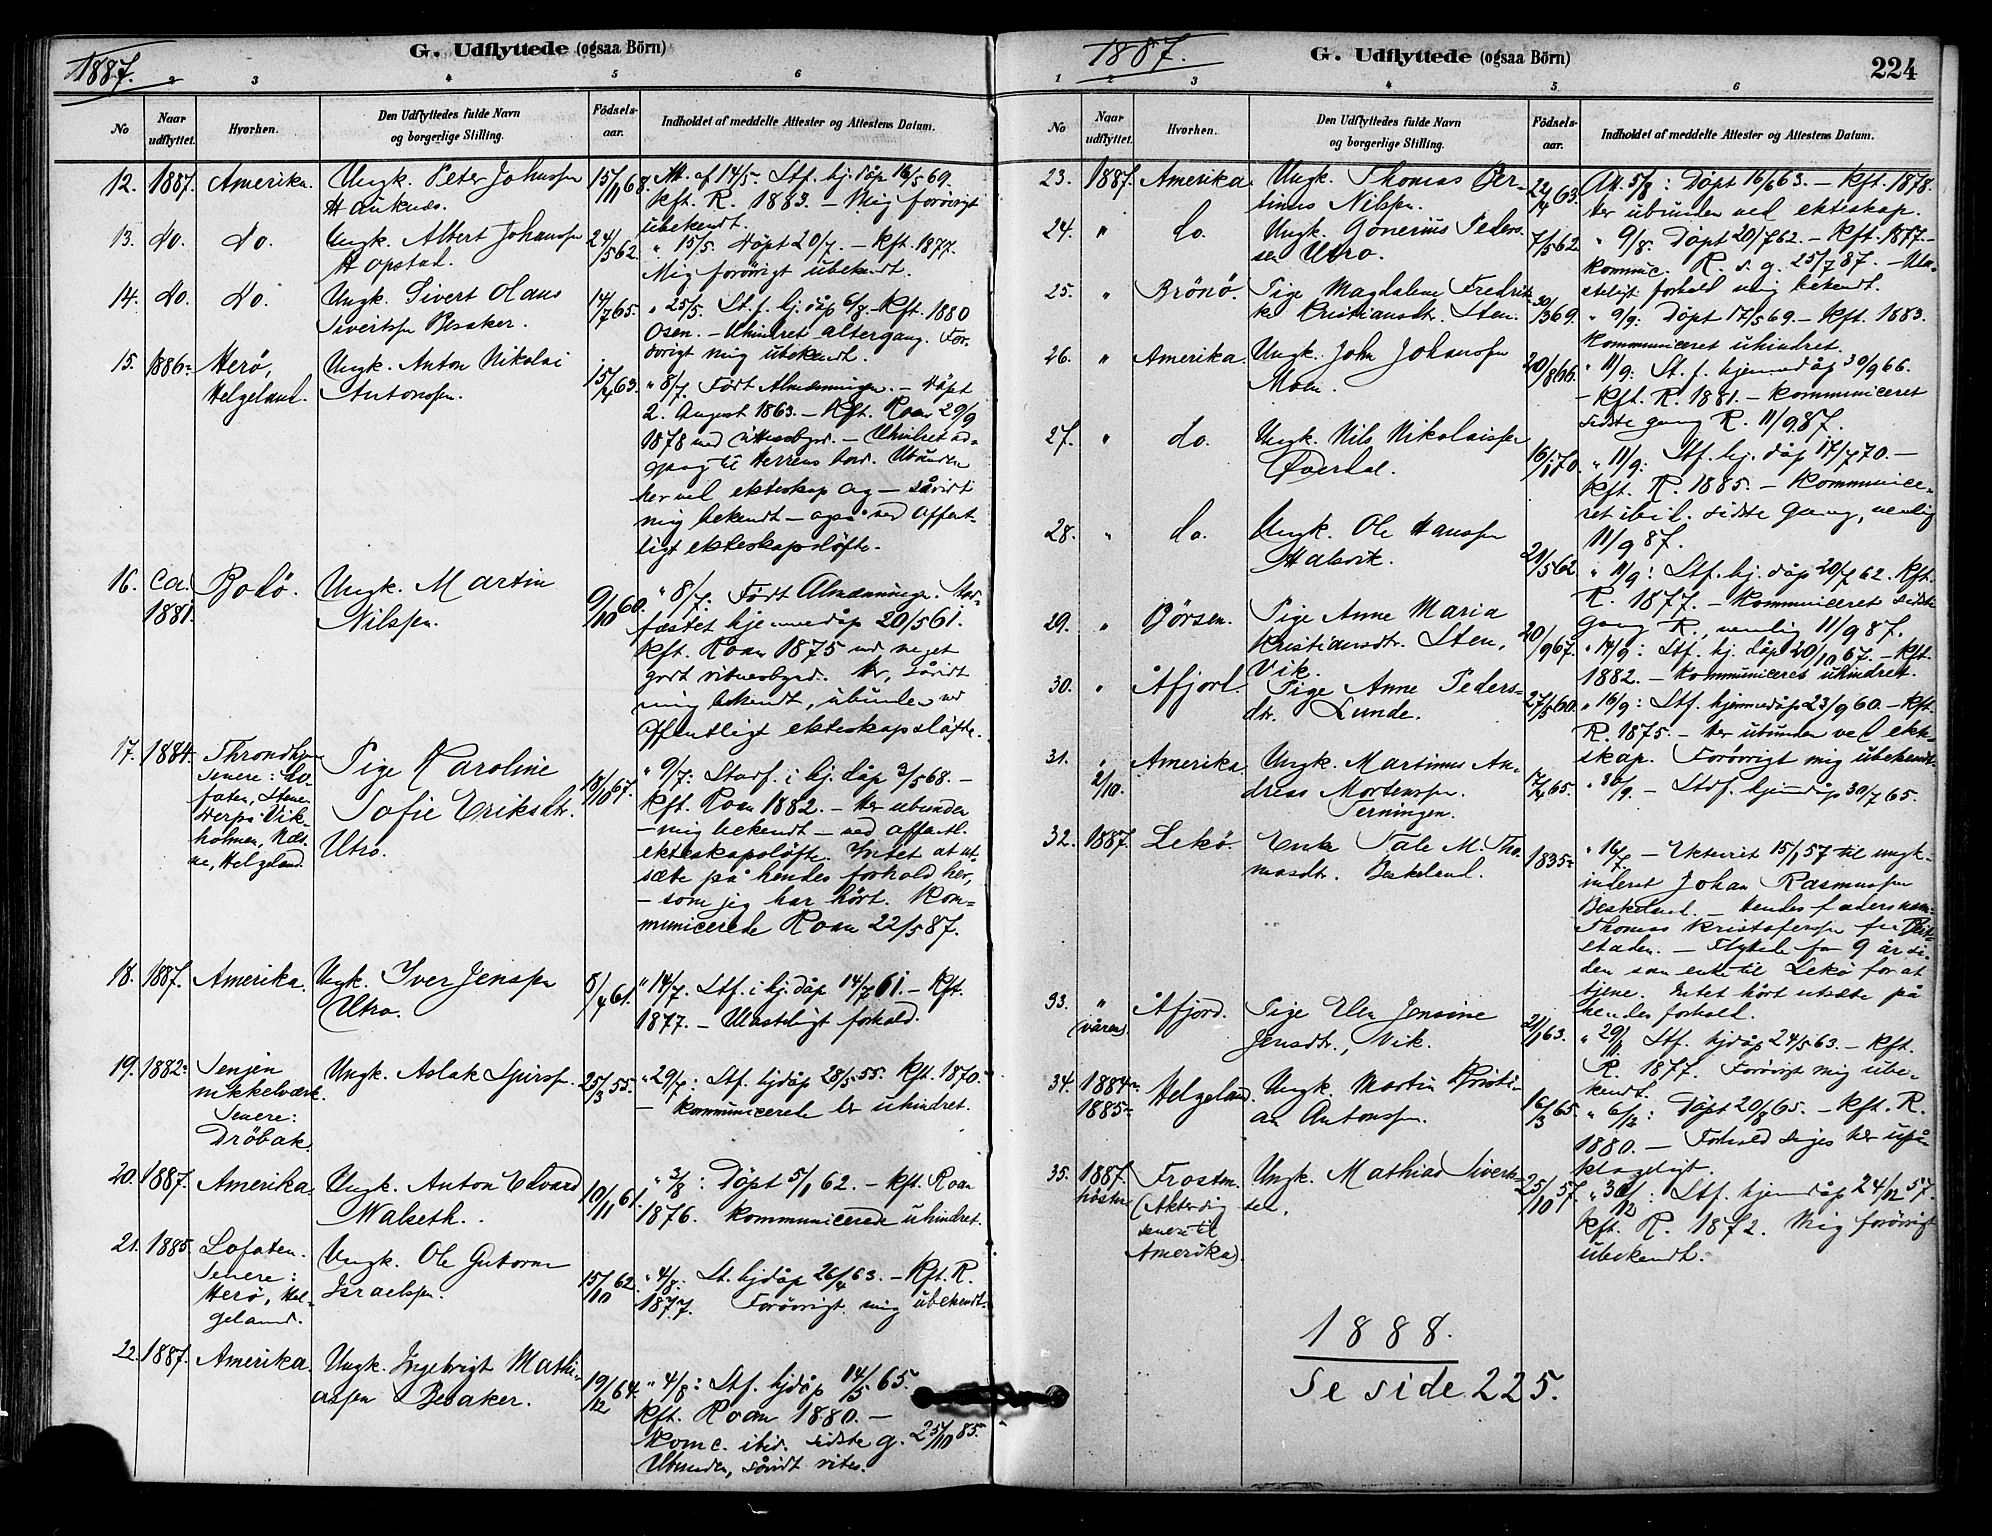 1887.
G. Udflyttede (ogsaa Börn)
2 3 4 5 6
No
Naar udflyttet.
Hvorhen.
Den Udflyttedes fulde Navn og borgerlige Stilling.
Födsels-aar.
Indholdet af meddelte Attester og Attestens Datum.
12. 1887. Amerika. Ungk. Peter Johnsen
Hauknes.
15/11 68.
Att. af 14/5. Stf. hj. døp 16/5 69.
kft. R. 1883. – Mig forövrigt
ubekendt.
13. do. do. Ungk. Albert Johansen
Hopstad.
24/5 62.
" 15/5. Döpt 20/7. – kft. 1877.
Mig forövrigt ubekendt.
14. do. do. Ungk. Sivert Olaus
Sivertsen Besaker.
14/7 65.
" 25/5. St. f. hj. dåp 6/8. – kft. 1880
Osen. – Uhindret altergang. For-
övrigt mig ubekendt.
15. 1886. Herø,
Helgeland.
Ungk. Anton Nikolai
Antonsen.
15/4 63.
" 8/7. Født Almenningen. – Döpt
2. August 1863. – Kft. Roan 29/9
1878 med vitnesbyrd. – Uhindret ad-
gang til Herrens bord. Ubunden
her ved ekteskap og – såvidt
mig bekendt – også ved offent-
ligt ekteskapsløfte.
16. Ca.
1881.
Bodø. Ungk. Martin
Nilssen.
9/10 60.
" 8/7. Født Almenningen. Stad-
fæstet hjemmedåp 20/5 61.
Kft. Roan 1875 med meget
godt vitnesbyrd. Her, såvidt
mig bekendt, ubunden ved
offentligt ekteskapsløfte.
17. 1884. Throndhjem
Senere: Lo-
foten,
Vik-
holmen, Næs-
ne, Helgeland.
Pige Karoline
Sofie Eriksdtr.
Utro.
18/10 67.
" 9/7: Stadf. i hj. dåp 3/5 68. –
Kft. Roan 1882. – Her ubunden
– mig bekendt – ved offentl.
ekteskapsløfte. Intet at ut-
sæte på hendes forhold her,
– som jeg har hört. Kom-
municerede Roan 22/5 87.
18. 1887. Amerika. Ungk. Iver Jenssen
Utro.
8/4 61.
" 14/7. Stf. i hj. dåp 14/7 61. – Kft.
1877. – Ulasteligt forhold.
19. 1882. Senjen
nikkelværk.
Senere:
Dröbak.
Ungk. Aslak
25/3 55.
" 29/7: Stf. hjdåp 28/5 55. Kft. 1870.
– kommunicerede her uhindret.
20. 1887. Amerika. Ungk. Anton Edvard
Malseth.
10/11 61.
" 3/8: Döpt 5/1 62. – kft. Roan
1876. kommunicerede uhindret.
21. 1885. Lofoten.
Senere:
Herø, Hel-
geland.
Ungk. Ole Gutorm
Israelsen.
15/10 62.
" 4/8: St. hjdåp 26/4 63. – Kft. R.
1877. Forövrigt mig ubekendt.
22. 1887. Amerika. Ungk. Ingebrigt Mathi-
assen Besaker.
19/12 64.
" 4/8: Stf. hjdåp 14/5 65.
kft. Roan 1880. –
Komc. ibid. sidste g. 25/10 85.
Ubunden, såvidt vites.
1887.
G. Udflyttede (ogsaa Börn)
224
1 2 3 4 5 6
No
Naar udflyttet.
Hvorhen.
Den Udflyttedes fulde Navn og borgerlige Stilling.
Födsels-aar.
Indholdet af meddelte Attester og Attestens Datum.
23. 1887. Amerika. Ungk. Thomas
Nilssen.
22/4 63.
Att. 5/8: Döpt 16/6 63. – kft. 1878.
Her ubunden ved ekteskap.
24. " do. Ungk. Gönerius Peders-
sen Utro.
7/5 62.
" 9/8: Döpt 20/7 62. – kft. 1877. –
Kommunic. R. s. g. 25/7 87. – Ula-
steligt forhold mig bekendt.
25. " Brönö. Pige Magdalene Fredrik-
ke Kristiansdtr. Sten.
30/3 69.
" 9/9: Döpt 17/5 69. – Kft. 1883.
Kommuniceret uhindret.
26. " Amerika. Ungk. John Johansen
Moen.
20/8 66.
" 11/9: St. f. hjemmedåp 30/9 66.
– kft. R. 1881. – kommuniceret
sidste gang R. 11/9 87.
27. " do. Ungk. Nils Nikolaissen
Överdal.
16/1 70.
" 11/9: Stf. hj. dåp 17/7 70. –
Kft. R. 1885. – kommunice-
ret ibid. sidste gang, nemlig
11/9 87.
28. " do. Ungk. Ole Hanssen
Halsvik.
21/5 62
" 11/9: Stf. hj. dåp 20/7 62. kft.
R. 1877. – kommuniceret sidste
gang R., nemlig 11/9 87.
29. " Börsen. Pige Anne Maria
Kristiansdtr. Sten,
Vik.
20/9 67.
" 14/9: Stf. hj. dåp 20/10 67. – kft.
1882. – kommuniceret uhindret.
30. " Åfjord. Pige Anne Peders-
dtr. Lunde.
27/5 60.
" 16/9: Stf. hjemmedåp 23/9 60. – kft.
R. 1875. – Her ubunden ved ekte-
skap. Forövrigt mig ubekendt.
31. "
2/10.
Amerika. Ungk. Martinus An-
dreas Mortenssen.
Terningen.
17/4 65.
" 30/9. – Stdf. hjemdåp 30/7 65.
32. 1887. Lekö. Enke Tale M. Tho-
masdtr. Beskeland.
1835.
" 16/7 – Ekteviet 15/1 57 til ungk.
inderst Johan Rasmussen
Beskeland. – Hendes fædersnavn:
Thomas Kristofersen
– Flyttede for 9 år si-
den som enke til Lekö for at
tjene. Intet hört utsæte på
hendes forhold.
33. "
(våren)
Åfjord. Pige Elen Jensine
Jensdtr., Vik.
21/1 63.
" 29/11 Stf. hjdåp 24/5 63. – kft.
R. 1877. Forövrigt mig ube-
kendt.
34. 1884
1885
Helgeland. Ungk. Martin Kristi-
an Antonssen.
16/3 65.
" 6/12: Döpt 20/8 65. – kft. R.
1880. – Forhold siges her upå-
klageligt.
35. 1887.
hösten
Frosten.
(Akter dig
senere til
Amerika).
Ungk. Mathias Siverts-
sen.
25/10 57.
" 30/12: Stf. hjemdåp 24/12 57.
kft. R. 1872. Mig forövrigt
ubekendt.
1888.
Se side 225.